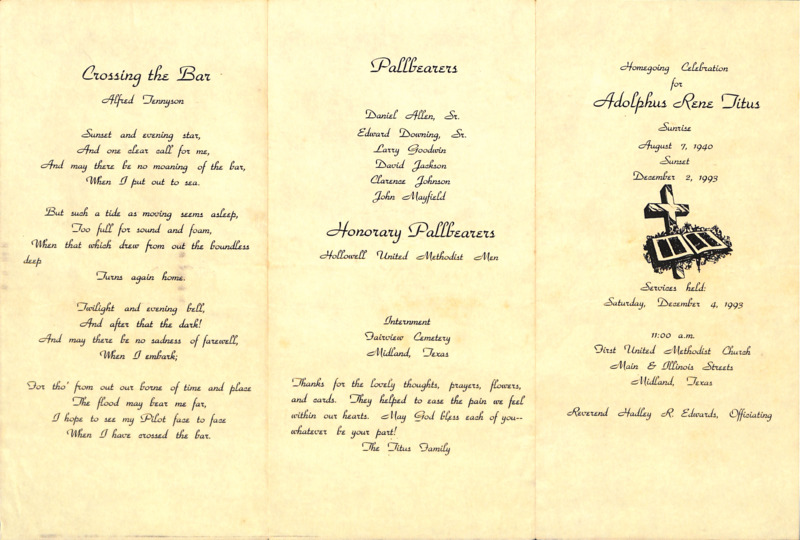 Crossing the Bar
Alfred Tennyson
Sunset and evening star,
And one clear call for me,
And may there be no moaning of the bar,
When I put out to sea.
But such a tide as moving seems asleep,
Too full for sound and foam,
When that which drew from out the boundless
deep
Turns again home.
Twilight and evening bell,
And after that the dark!
And may there be no sadness of farewell,
When I embark;
For tho' from out our borne of time and place
The flood may bear me far,
I hope to see my Pilot face to face
When I have crossed the bar.
Pallbearers
Daniel Allen, Sr.
Edward Downing, Sr.
Larry Goodwin
David Jackson
Clarence Johnson
John Mayfield
Honorary Pallbearers
Hollowell United Methodist Men
Internment
Fairview Cemetery
Midland, Texas
Thanks for the lovely thoughts, prayers, flowers,
and cards. They helped to ease the pain we feel
within our hearts. May God bless each of you--
whatever be your part!
The Titus Family
Homegoing Celebration
for
Adolphus Rene Titus
Sunrise
August 7, 1940
Sunset
December 2, 1993
Services held:
Saturday, December 4, 1993
11:00 a.m.
First United Methodist Church
Main & Illinois Streets
Midland, Texas
Reverend Hadley R. Edwards, Officiating